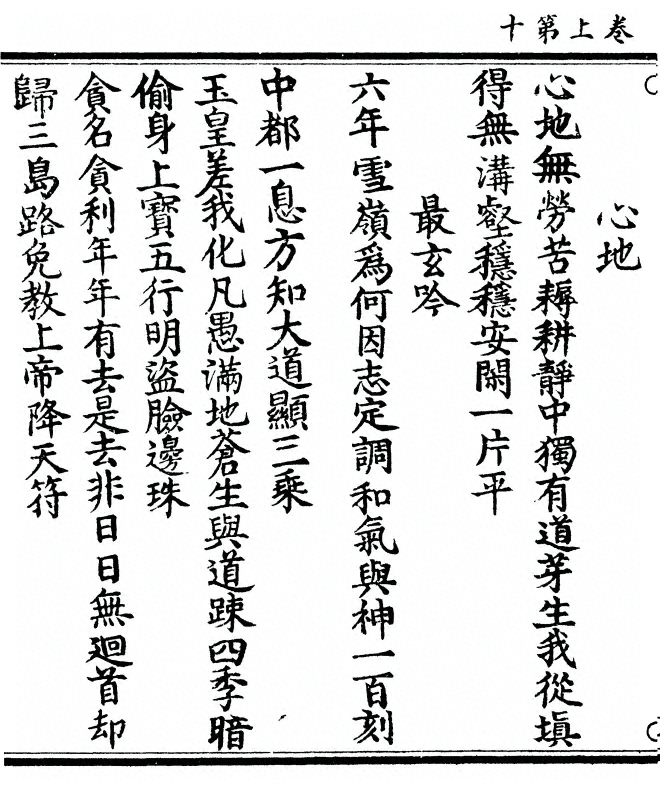 卷上第十
心地
心地無勞苦耨耕靜中獨有道芽生我從塡
得無溝壑穩穩安閑一片平
最玄吟
六年雪嶺爲何因志定調和氣與神一百刻
中都一息方知大道顯三乘
玉皇差我化凡愚滿地蒼生與道踈四季暗
偷身上寶五行明盜臉邊珠
貪名貪利年年有去是去非日日無廻首却
歸三島路免教上帝降天符